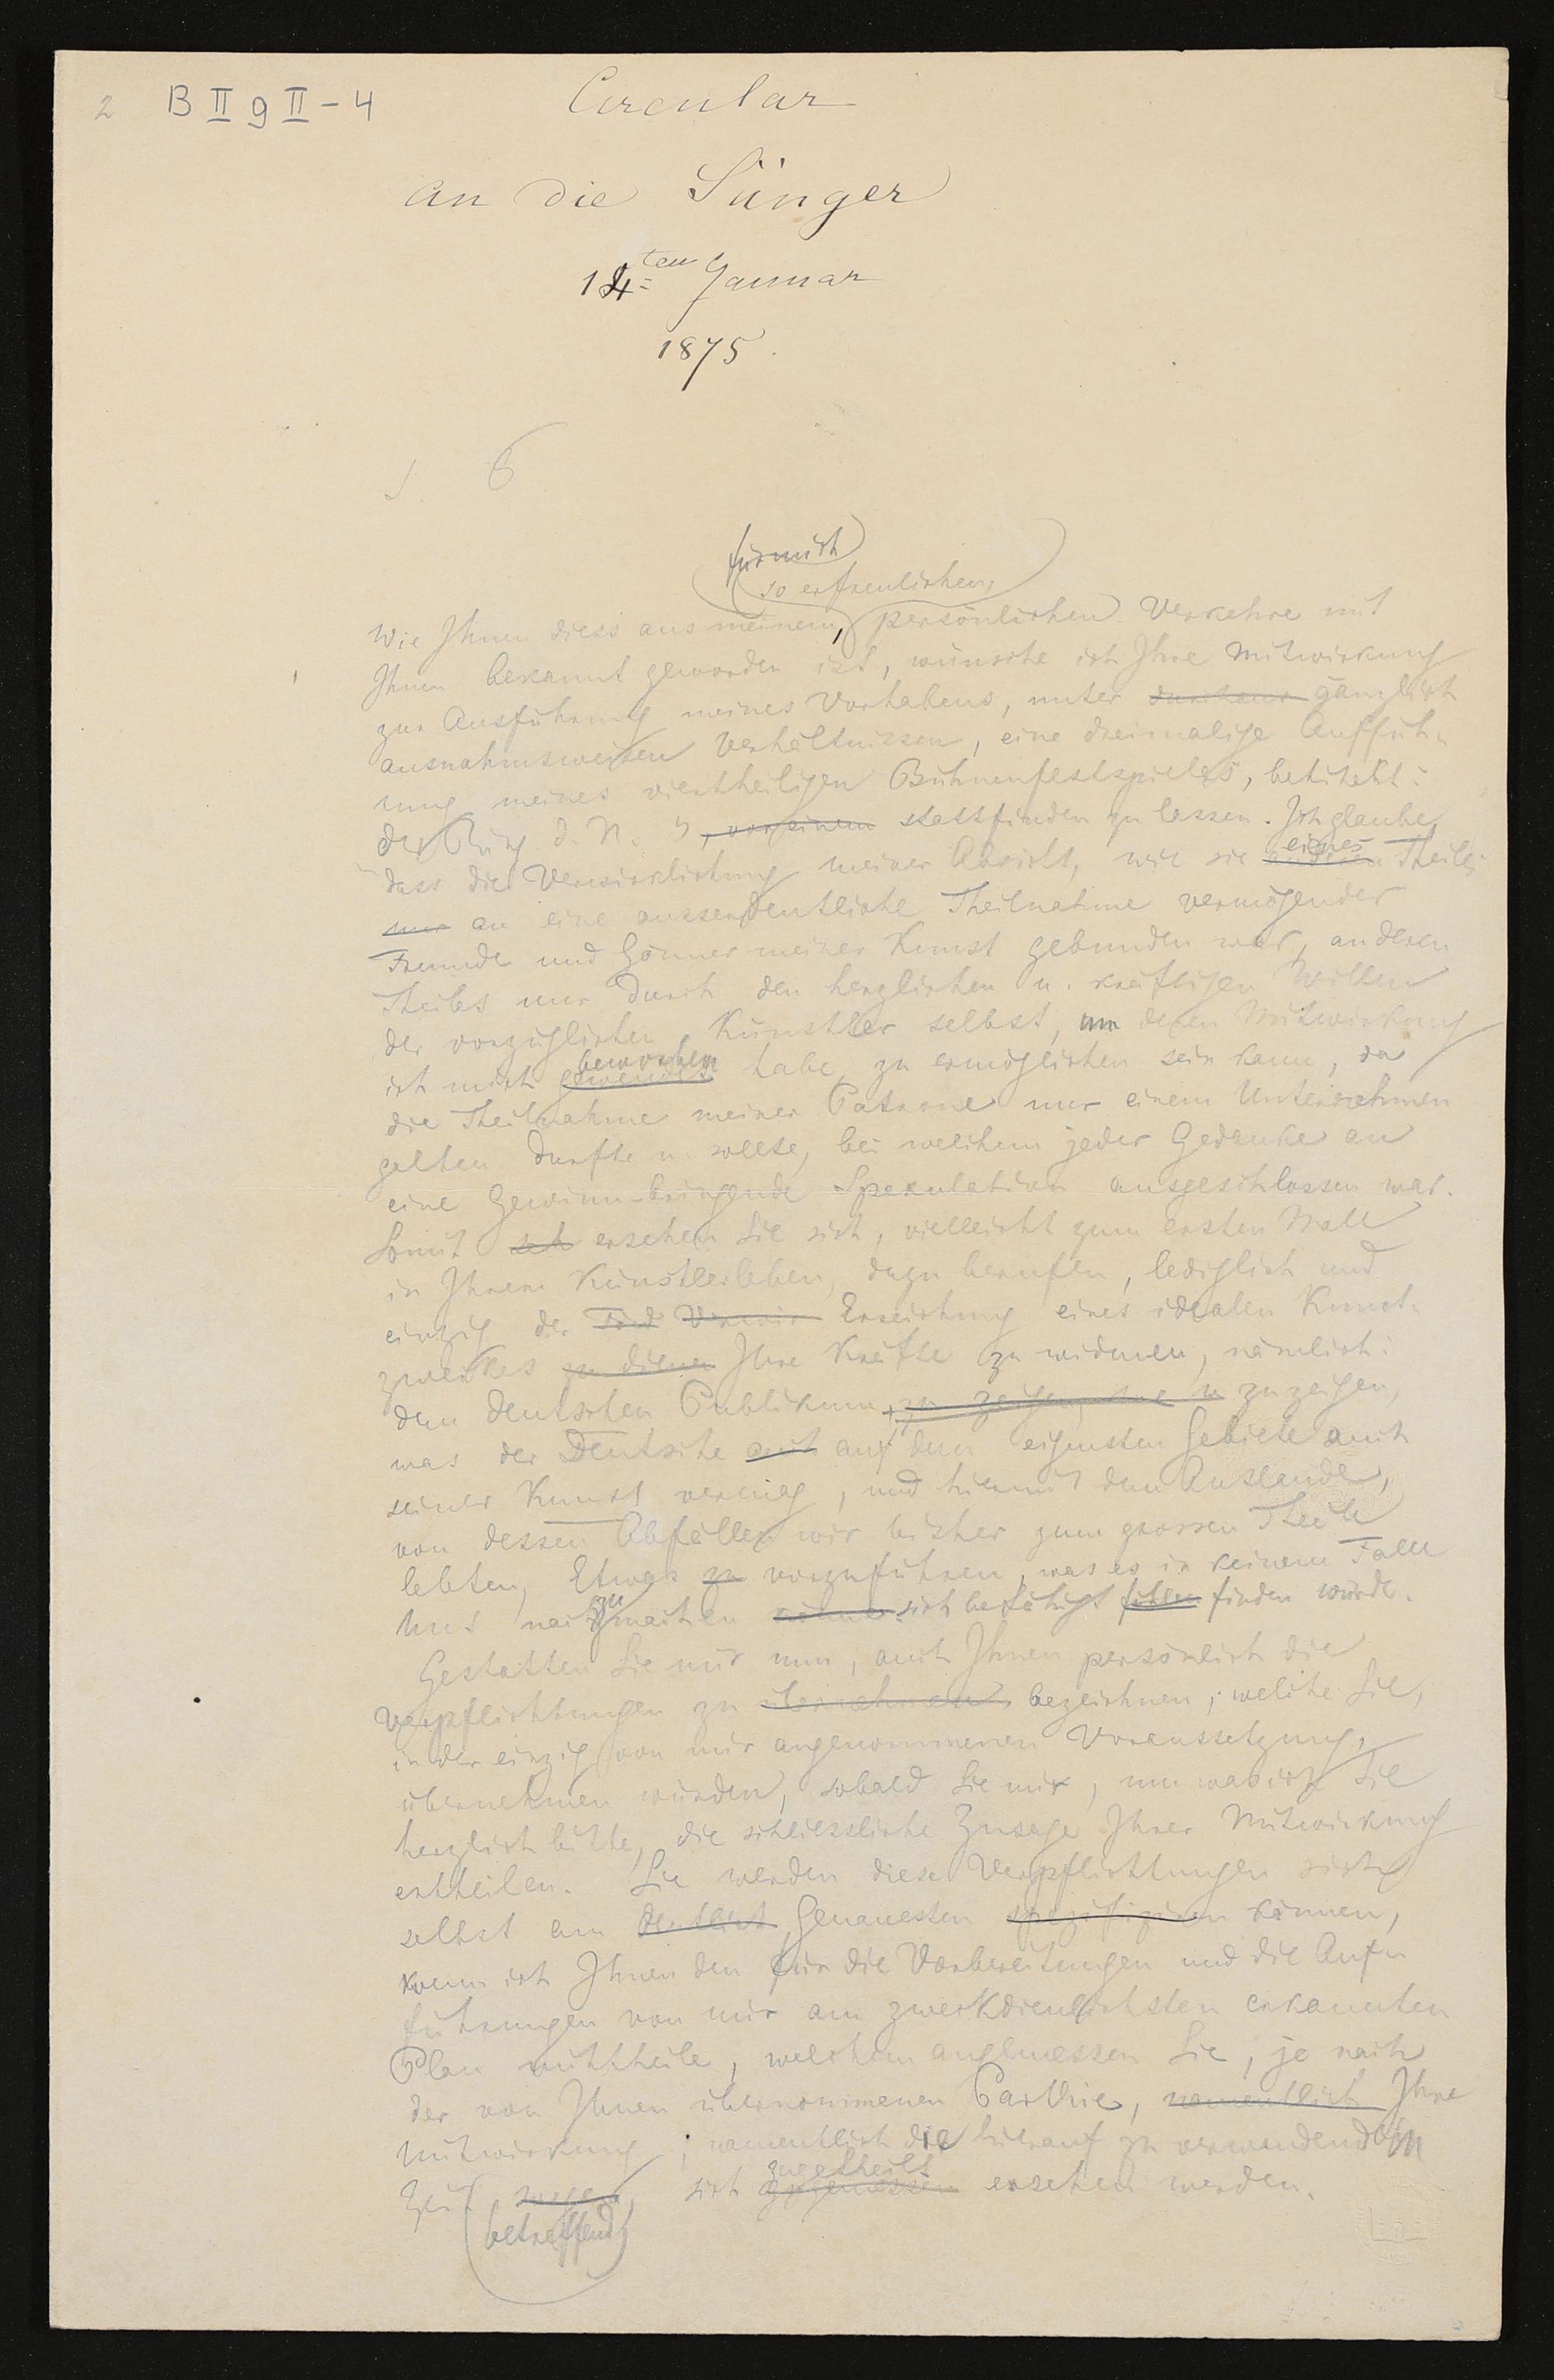 2 B II g II - 4
Circular
an die Sänger
14ten Januar
1875.
S. 6
für mich
so erfreulichen,
Wie Ihnen diess aus meinem, persönlichen Verkehre mit
Ihnen bekannt geworden ist, wünsche ich Ihre Mitwirkung
zur Ausführung meines Vorhabens, unter durchaus gänzlich
ausnahmsweisen Verhältnissen, eine dreimalige Auffüh-
rung meines viertheiligen Bühnenfestspieles, betitelt:
der Ring d. N. ", vor einem stattfinden zu lassen. Ich glaube,
eines
dass die Verwirklichung meiner Absicht, wie sie anderen Theils
nur an eine ausserordentliche Theilnahme vermögender
Freunde und Gönner meiner Kunst gebunden war, anderen
Theiles nur durch den herzlichen u. kräftigen Willen
der vorzüglichen Künstler selbst, um deren Mitwirkung
beworben
ich mich gewendet habe, zu ermöglichen sein kann, da
die Theilnahme meiner Patrone nur einem Unternehmen
gelten durfte u. sollte, bei welchem jeder Gedanke an
eine Gewinn-bringende Spekulation ausgeschlossen war.
Somit seh ersehen Sie sich, vielleicht zum ersten Male
in Ihrem Künstlerleben, dazu berufen, lediglich und
einzig der Verwir Erreichung eines idealen Kunst-
zweckes zu dienen Ihre Kräfte zu widmen, nämlich:
dem deutschen Publikum, zu zeigen, was zu zeigen,
was der Deutsche auf dem eigensten Gebiete auch
seiner Kunst vermag, und hiermit dem Auslande,
von dessen Abfällen wir bisher zum grossen Theile
lebten, Etwas zu vorzuführen, was es in keinem Falle
zu
uns nachmachen könne sich befähigt fühlen finden würde.
Gestatten Sie mir nun, auch Ihnen persönlich die
Verpflichtungen zu übernehmen bezeichnen, welche Sie,
in der einzig von mir angenommenen Voraussetzung,
übernehmen würden, sobald Sie mir, um was ich Sie
herzlich bitte, die schliessliche Zusage Ihrer Mitwirkung
ertheilen. Sie werden diese Verpflichtungen sich
selbst am deutlich Genauesten spezifiziren können,
wenn ich Ihnen den für die Vorbereitungen und die Auf-
führungen von mir am zweckdienlichsten erkannten
Plan mittheile, welchem angemessen Sie, je nach
der von Ihnen übernommenen Parthie, namentlich Ihre
Mitwirkung, namentlich die hierauf zu verwendenden
zugetheilt
Zeit wegen sich zugemessen ersehen werden.
betreffend